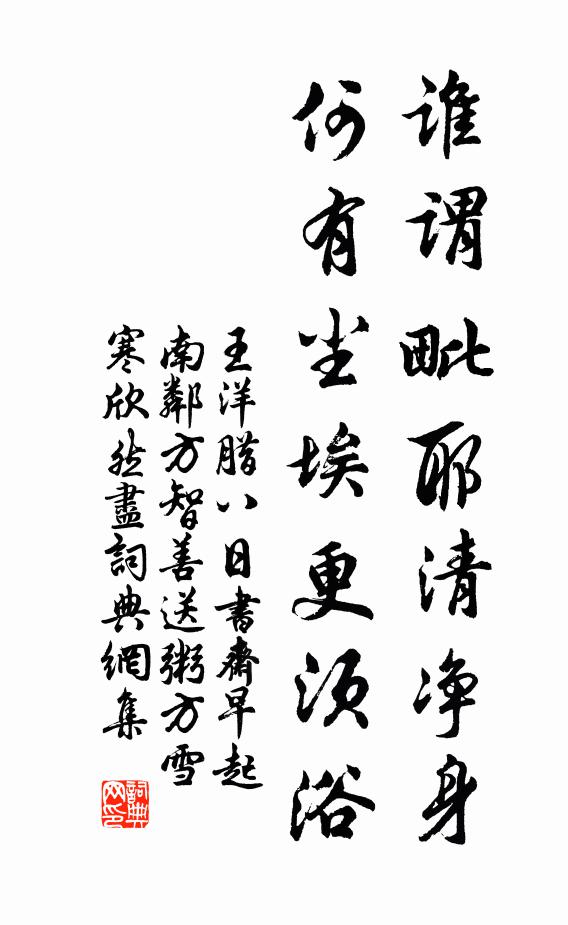 谁谓毗耶清净身
何有尘埃更须浴
王洋腊八日书斋早起
南邻方智善送粥方雪
寒欣然尽词典網集
詞典網印